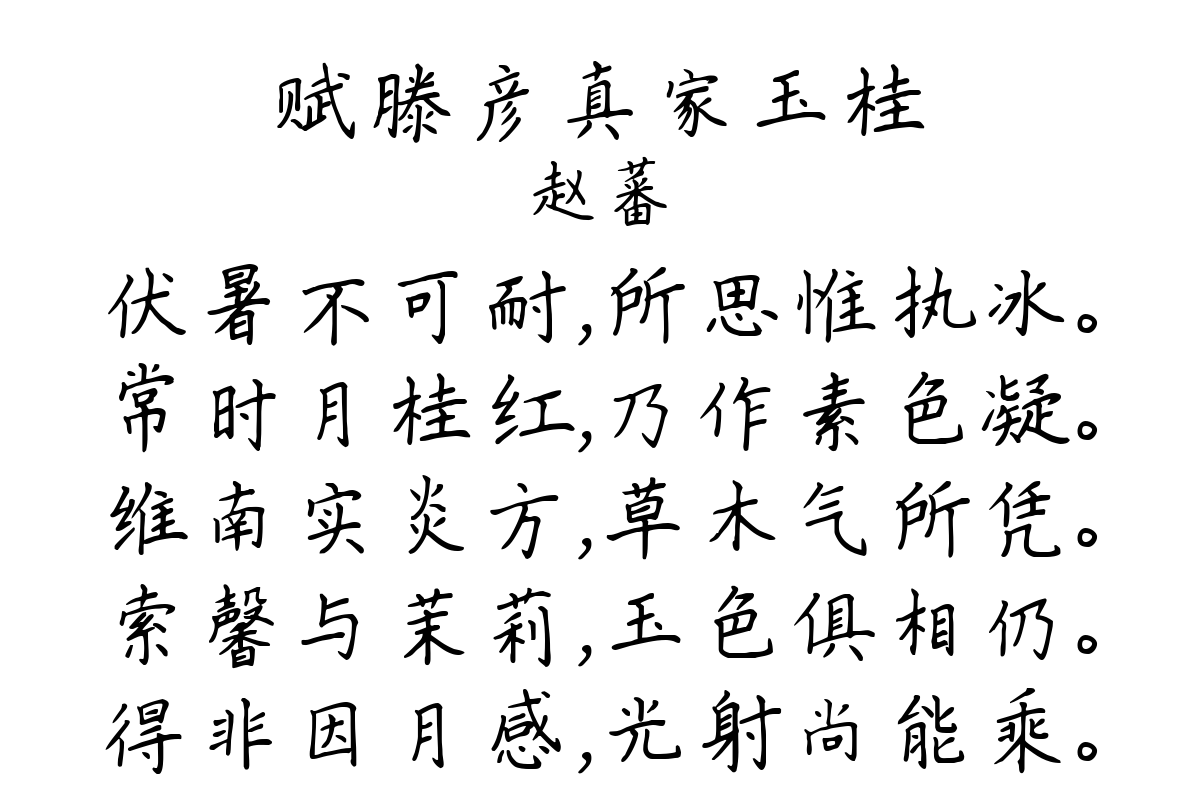 赋滕彦真家玉桂
赵蕃
伏暑不可耐,所思惟执冰。
常时月桂红,乃作素色凝。
维南实炎方,草木气所凭。
索馨与茉莉,玉色俱相仍。
得非因月感,光射尚能乘。